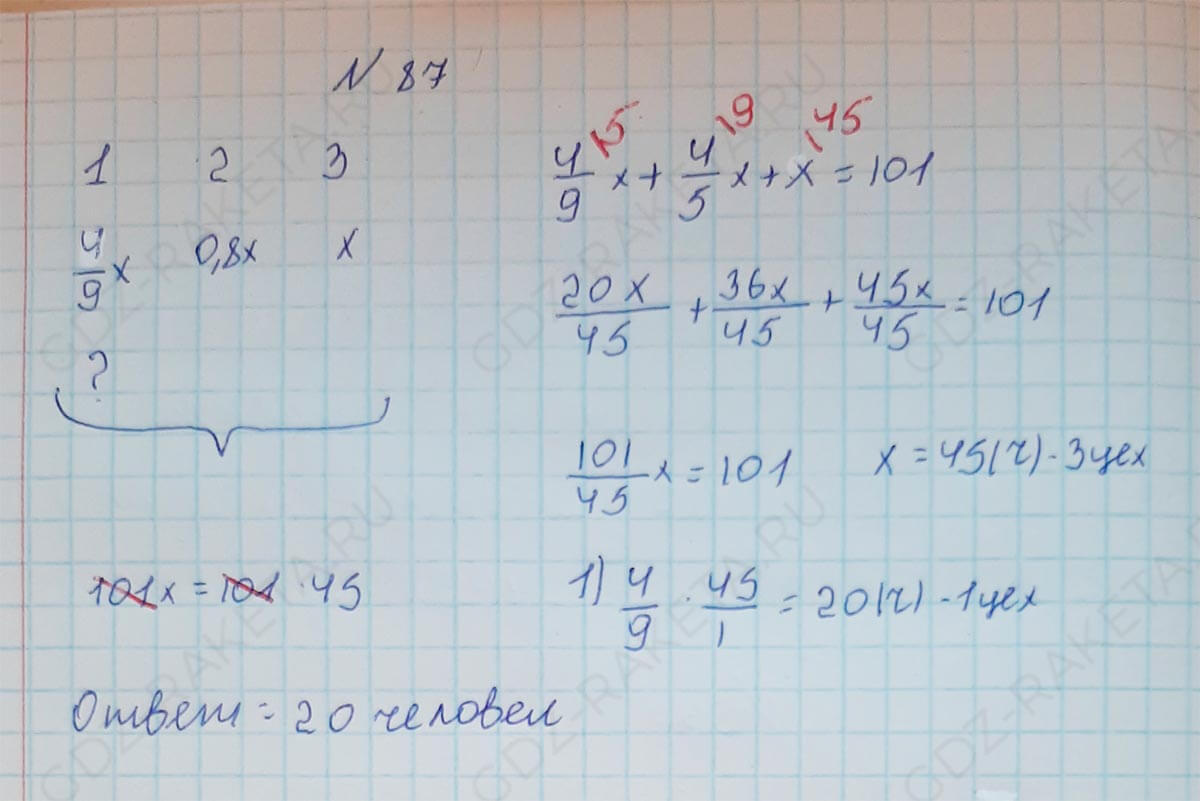 N 87
1 2 3
4/9 x 0,8x x
?
4/9 x + 4/5 x + x = 101
\5 \9 \45
20x/45 + 36x/45 + 45x/45 = 101
101/45 x = 101 x = 45(ч) - 3 цех
101x = 101 · 45
1) 4/9 · 45/1 = 20(ч) - 1 цех
Ответ = 20 человек
GDZ-RAKETA.RU